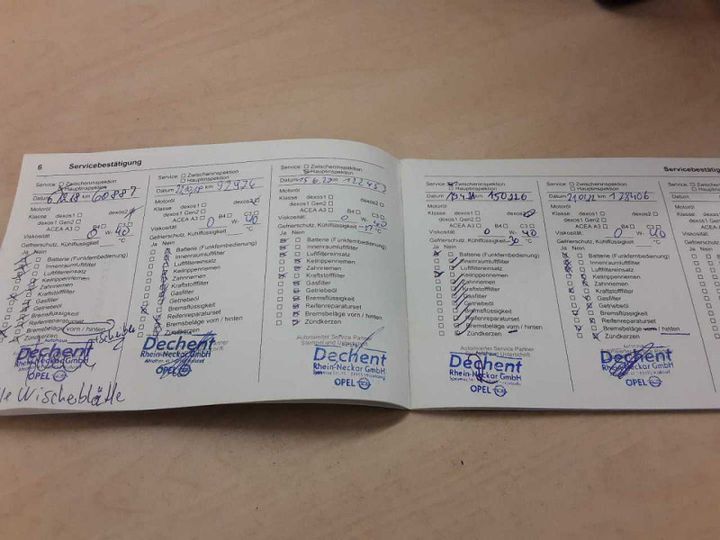 6 Servicebestätigung
Service: □ Zwischeninspektion
□ Hauptinspektion
Datum km 60887
Motoröl
Klasse dexos1 □ dexos2
dexos1 Gen2 □
ACEA A3 □ B4 □ C3 □
Viskosität 0 W- 40
Gefrierschutz, Kühlflüssigkeit °C
Ja Nein
Batterie (Funkfernbedienung)
Innenraumluftfilter
Luftfiltereinsatz
Keilrippenriemen
Zahnriemen
Kraftstofffilter
Gasfilter
Getriebeöl
Bremsflüssigkeit
Reifenreparaturset
Bremsbeläge vorn / hinten
Zündkerzen
Autohaus
Dechent
Rhein-Neckar GmbH
OPEL
Wischerblätter
Service: □ Zwischeninspektion
□ Hauptinspektion
Datum km 92926
Motoröl
Klasse dexos1 □ dexos2
dexos1 Gen2 □
ACEA A3 □ B4 □ C3 □
Viskosität 0 W- 40
Gefrierschutz, Kühlflüssigkeit °C
Ja Nein
Batterie (Funkfernbedienung)
Innenraumluftfilter
Luftfiltereinsatz
Keilrippenriemen
Zahnriemen
Kraftstofffilter
Gasfilter
Getriebeöl
Bremsflüssigkeit
Reifenreparaturset
Bremsbeläge vorn / hinten
Zündkerzen
Dechent
Rhein-Neckar GmbH
OPEL
Service: □ Zwischeninspektion
Hauptinspektion
Datum km 122453
Motoröl
Klasse dexos1 □ dexos2
dexos1 Gen2 □
ACEA A3 □ B4 □ C3 □
Viskosität 0 W- 40
Gefrierschutz, Kühlflüssigkeit °C
Ja Nein
Batterie (Funkfernbedienung)
Innenraumluftfilter
Luftfiltereinsatz
Keilrippenriemen
Zahnriemen
Kraftstofffilter
Gasfilter
Getriebeöl
Bremsflüssigkeit
Reifenreparaturset
Bremsbeläge vorn / hinten
Zündkerzen
Autorisierter Service Partner
Stempel und Unterschrift
Dechent
Rhein-Neckar GmbH
OPEL
Servicebestätig
Service: Zwischeninspektion
□ Hauptinspektion
Datum km 150226
Motoröl
Klasse dexos1 □ dexos2
dexos1 Gen2 □
ACEA A3 □ B4 □ C3 □
Viskosität 0 W- 40
Gefrierschutz, Kühlflüssigkeit 30 °C
Ja Nein
Batterie (Funkfernbedienung)
Innenraumluftfilter
Luftfiltereinsatz
Keilrippenriemen
Zahnriemen
Kraftstofffilter
Gasfilter
Getriebeöl
Bremsflüssigkeit
Reifenreparaturset
Bremsbeläge vorn / hinten
Zündkerzen
Autorisierter Service Partner
Dechent
Rhein-Neckar GmbH
OPEL
Service: □ Zwischeninspektion
Hauptinspektion
Datum km 178406
Motoröl
Klasse dexos1 □ dexos2
dexos1 Gen2 □
ACEA A3 □ B4 □ C3 □
Viskosität 0 W- 40
Gefrierschutz, Kühlflüssigkeit °C
Ja Nein
Batterie (Funkfernbedienung)
Innenraumluftfilter
Luftfiltereinsatz
Keilrippenriemen
Zahnriemen
Kraftstofffilter
Gasfilter
Getriebeöl
Bremsflüssigkeit
Reifenreparaturset
Bremsbeläge vorn / hinten
Zündkerzen
Dechent
Rhein-Neckar GmbH
OPEL
Service
Datum
Motoröl
Klasse
Viskosität
Gefriers
Ja Nein